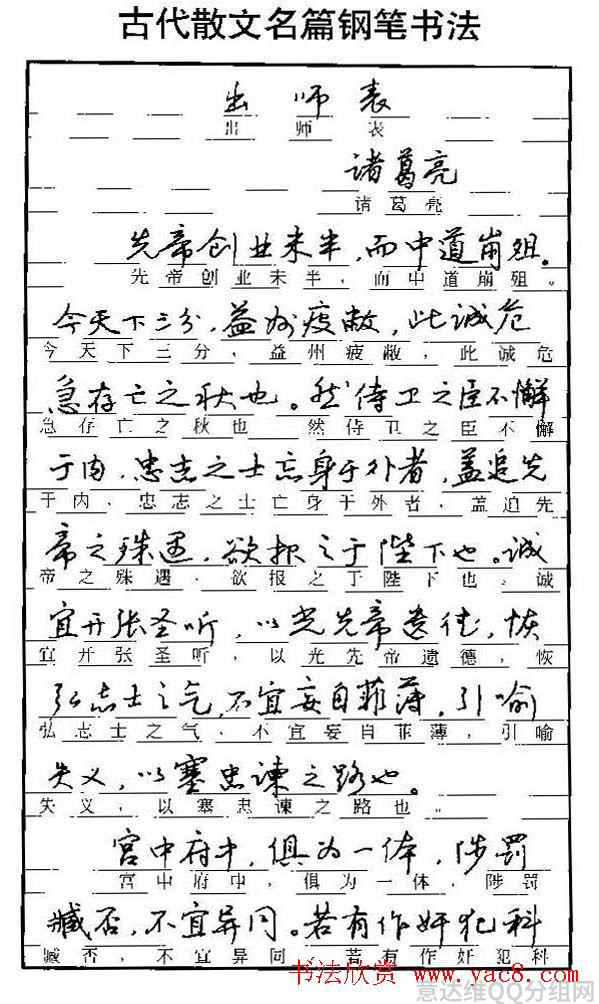 古代散文名篇钢笔书法
出师表
出师表
诸葛亮
诸葛亮
先帝创业未半,而中道崩殂。
先帝创业未半,而中道崩殂。
今天下三分,益州疲敝,此诚危
今天下三分,益州疲敝,此诚危
急存亡之秋也。然侍卫之臣不懈
急存亡之秋也 然侍卫之臣不懈
于内,忠志之士忘身于外者,盖追先
于内,忠志之士亡身于外者,盖追先
帝之殊遇,欲报之于陛下也。诚
帝之殊遇,欲报之于陛下也。诚
宜开张圣听,以光先帝遗德,恢
宜开张圣听,以光先帝遗德,恢
弘志士之气,不宜妄自菲薄,引喻
弘志士之气,不宜妄自菲薄,引喻
失义,以塞忠谏之路也。
失义,以塞忠谏之路也。
宫中府中,俱为一体,陟罚
宫中府中,俱为一体,陟罚
臧否,不宜异同。若有作奸犯科
臧否,不宜异同 若有作奸犯科
书法欣赏 www.yac8.com
意达维QQ分组网